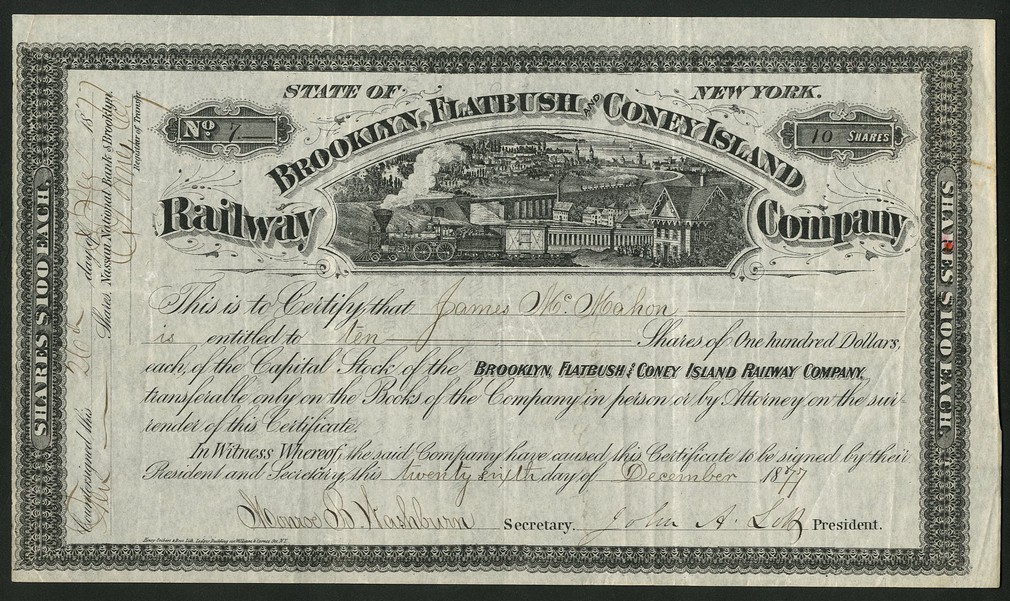 STATE OF NEW YORK.
No 7
10 SHARES
BROOKLYN, FLATBUSH AND CONEY ISLAND
Railway Company
This is to Certify that James Mc. Mahon
is entitled to ten Shares of One hundred Dollars,
each, of the Capital Stock of the BROOKLYN, FLATBUSH & CONEY ISLAND RAILWAY COMPANY,
transferable only on the Books of the Company in person or by Attorney on the sur-
render of this Certificate.
In Witness Whereof, the said Company have caused this Certificate to be signed by their
President and Secretary, this twenty sixth day of December 1877
Monroe B. Washburn Secretary. John A. Lott President.
SHARES $100 EACH.
SHARES $100 EACH.
Countersigned this 26th day of Dec 187
Ten Shares. Nassau National Bank of Brooklyn,
Registrar of Transfer.